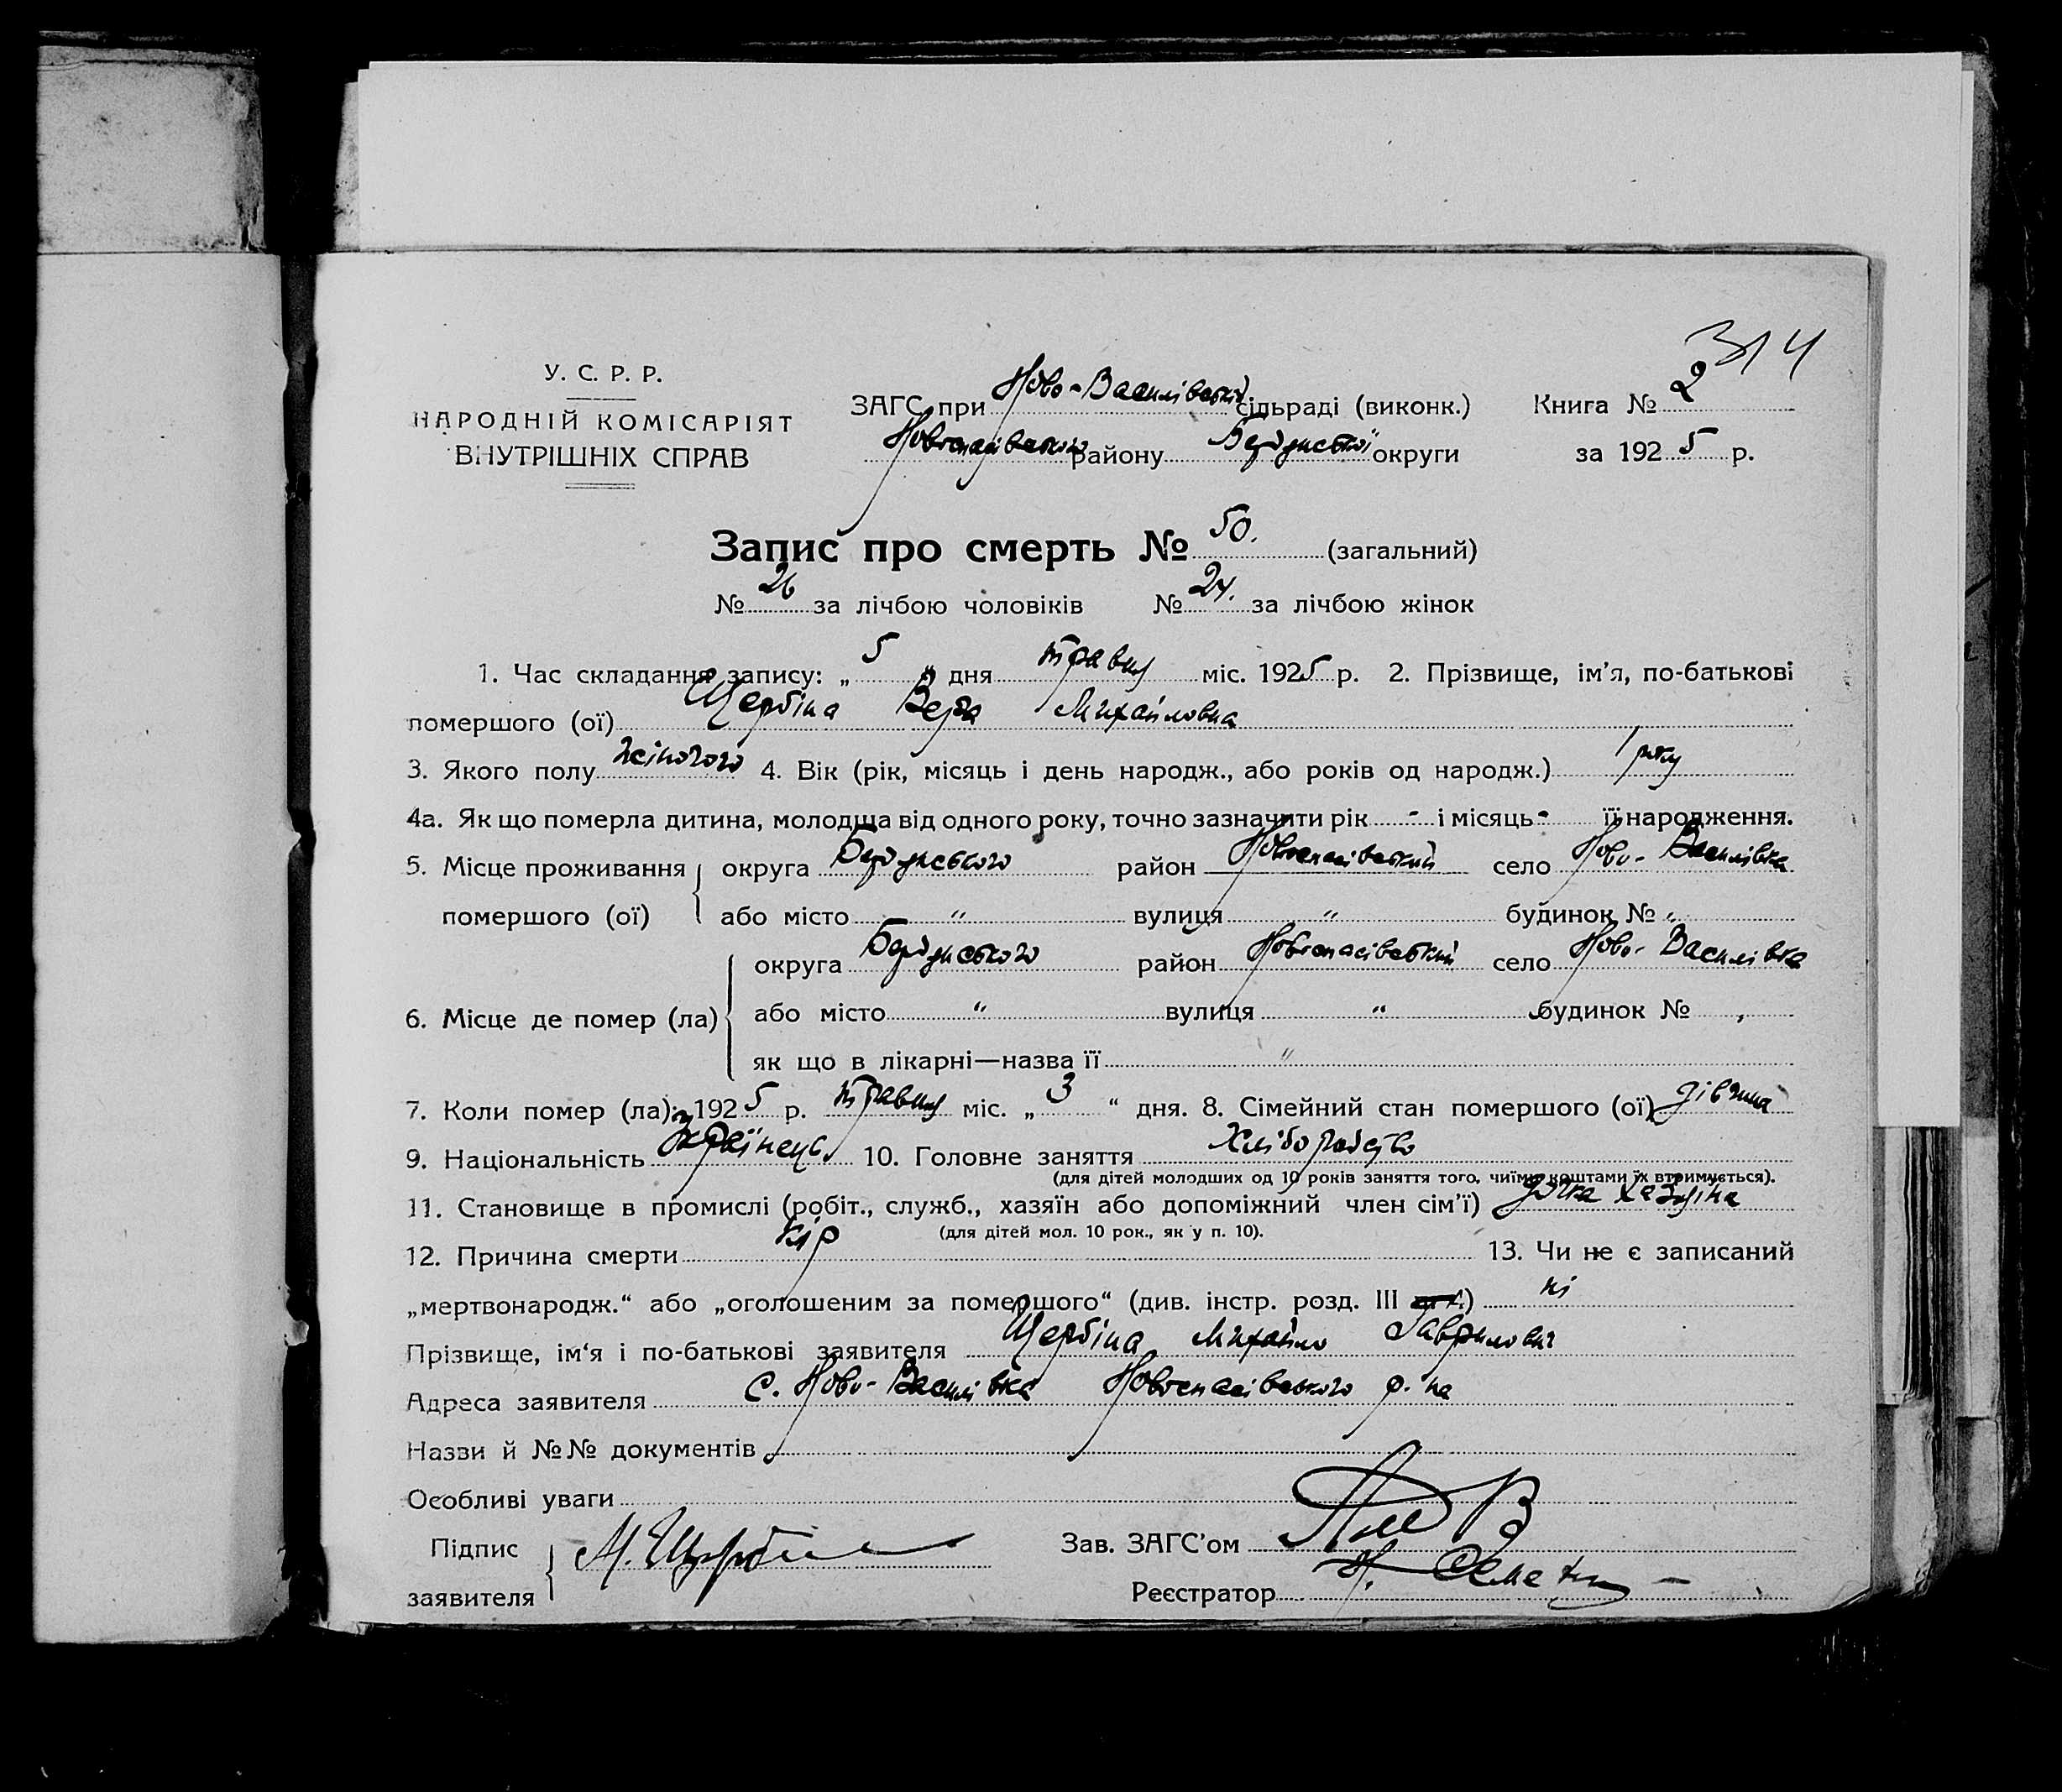 314
У. С. Р. Р.
НАРОДНІЙ КОМІСАРІЯТ
ВНУТРІШНІХ СПРАВ
ЗАГС при Ново-Василівській сільраді (виконк.) Книга № 2
Новоспасівського району Бердянської округи за 1925 р.
Запис про смерть № 50. (загальний)
№ 26 за лічбою чоловіків № 24. за лічбою жінок
1. Час складання запису: „5„ дня травня міс. 1925 р. 2. Прізвище, ім’я, по-батькові
помершого (ої) Щербіна Вера Михайловна
3. Якого полу жіночого 4. Вік (рік, місяць і день народж., або років од народж.) 1 року
4а. Як що померла дитина, молодща від одного року, точно зазначити рік - і місяць - її народження.
5. Місце проживання округа Бердянського район Новоспасівський село Ново-Василівка
помершого (ої) або місто " вулиця " будинок № "
округа Бердянського район Новоспасівський село Ново-Василівка
6. Місце де помер (ла) або місто " вулиця " будинок № ,
як що в лікарні—назва її "
7. Коли помер (ла): 1925 р. травня міс. „3“ дня. 8. Сімейний стан помершого (ої) дівчина
9. Національність Українець 10. Головне заняття Хліборобство
(для дітей молодших од 10 років заняття того, чиїми коштами їх втримується).
11. Становище в промислі (робіт., служб., хазяїн або допоміжний член сім’ї) дочка хазяїна
(для дітей мол. 10 рок., як у п. 10).
12. Причина смерти кір 13. Чи не є записаний
„мертвонародж.“ або „оголошеним за помершого“ (див. інстр. розд. III ) ні
Прізвище, ім‘я і по-батькові заявителя Щербіна Михайло Гаврилович
Адреса заявителя с. Ново-Василівка Новоспасівського р-на
Назви й №№ документів
Особливі уваги
Підпис заявителя М. Щербина Зав. ЗАГС’ом
Реєстратор